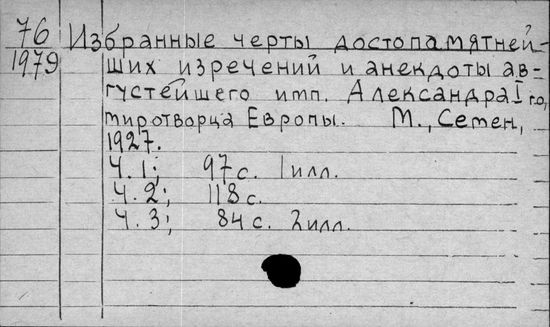 76
1979
Избранные черты достопамятней-
ших изречений и анекдоты ав-
густейшего имп. Александра I го,
миротворца Европы. М., Семен,
1927.
Ч. 1; 97 с. 1 илл.
Ч. 2; 118 с.
Ч. 3; 84 с. 2 илл.